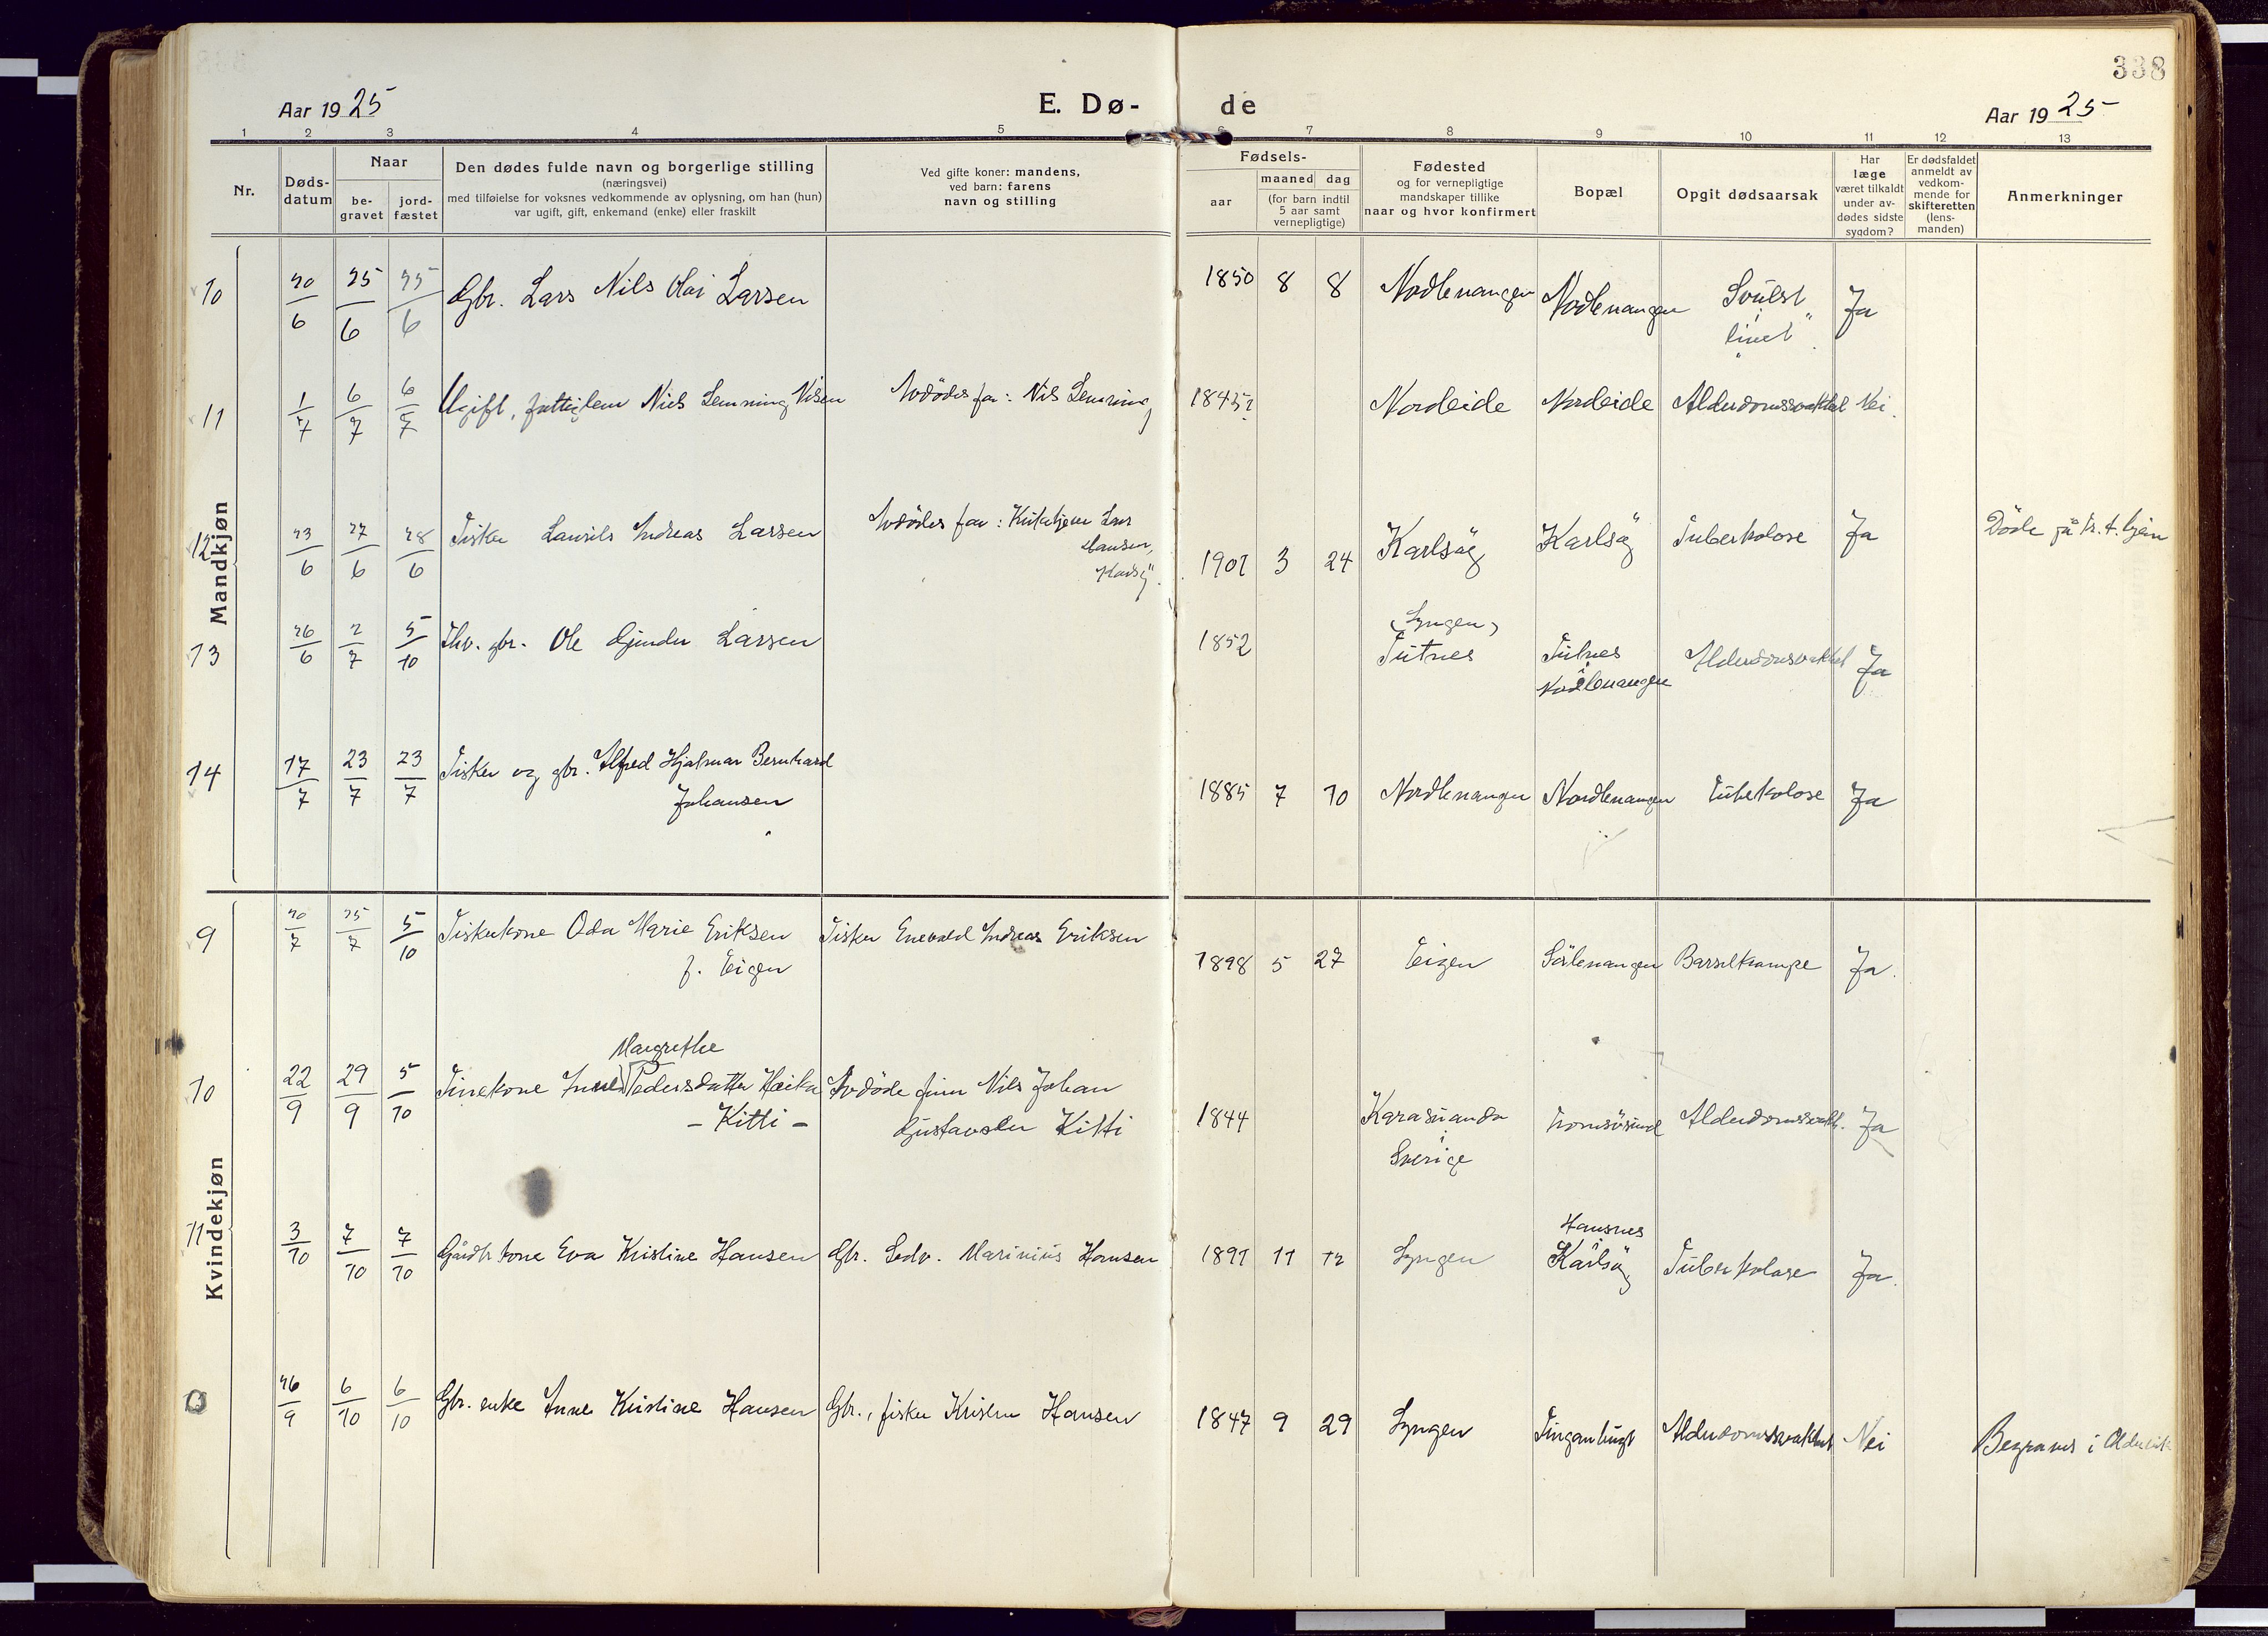 338
Aar 1925
E. Dø-
de
Aar 1925
1 2 3 4 5 6 7 8 9 10 11 12 13
Nr.
Døds-
datum
Naar
be-
gravet
jord-
fæstet
Den dødes fulde navn og borgerlige stilling
(næringsvei)
med tilføielse for voksnes vedkommende av oplysning, om han (hun)
var ugift, gift, enkemand (enke) eller fraskilt
Ved gifte koner: mandens,
ved barn: farens
navn og stilling
Fødsels-
aar
maaned dag
(for barn indtil
5 aar samt
vernepligtige)
Fødested
og for vernepligtige
mandskaper tillike
naar og hvor konfirmert
Bopæl
Opgit dødsaarsak
Har
læge
været tilkaldt
under av-
dødes sidste
sygdom?
Er dødsfaldet
anmeldt av
vedkom-
mende for
skifteretten
(lens-
manden)
Anmerkninger
Mandkjøn
10 20/6 25/6 25/6 Gbr. Lars Nils Olai Larsen 1850 8 8 Nordlenangen Nordlenangen Svulst Ja
i livet
11 1/7 6/7 6/7 Ugift, fattiglem Niels Lemning Nilsen Avdødes far: Nils Lemning 1845? Nordeide Nordeide Alderdomssvakhet Nei.
12 23/6 27/6 28/6 Fisker Laurits Andreas Larsen Avdødes far: Kirketjener Lars
Hansen,
Karlsöy. 1901 3 24 Karlsöy Karlsöy Tuberkolose Ja Döde på tr.
13 26/6 2/7 5/10 Fhv. gbr. Ole Gjunder Larsen 1852 (Lyngen)
Tutnes Tutnes
i
Nordlenangen Alderdomsvakhet Ja
14 17/7 23/7 23/7 Fisker og gbr. Alfred Hjalmar Bernhard
Johansen 1885 7 10 Nordlenangen Nordlenangen Tuberkolose Ja
Kvindekjøn
9 20/7 25/7 5/10 Fiskerkone Oda Marie Eriksen
f. Eigen Fisker Enevald Andreas Eriksen 1898 5 27 Eigen Sörlenangen Barselkrampe Ja.
10 22/9 29/9 5/10 Margrethe
Finekone Anne Pedersdatter Heika
- Kitti - Avdöde finn Nils Johan
Gustavsen Kitti 1844 Karasuando
i
Sverige Tromsösund Alderdomssvakh. Ja
11 3/10 7/10 7/10 Gårdbr.kone Eva Kristine Hansen Gbr. Edv. Marinius Hansen 1891 11 12 Lyngen Hansnes
i
Karlsöy Tuberkolose Ja.
26/9 6/10 6/10 Gbr. enke Anne Kristine Hansen Gbr., fisker Kristen Hansen 1847 9 29 Lyngen Finganbugt Alderdomssvakhet Nei Begraves i